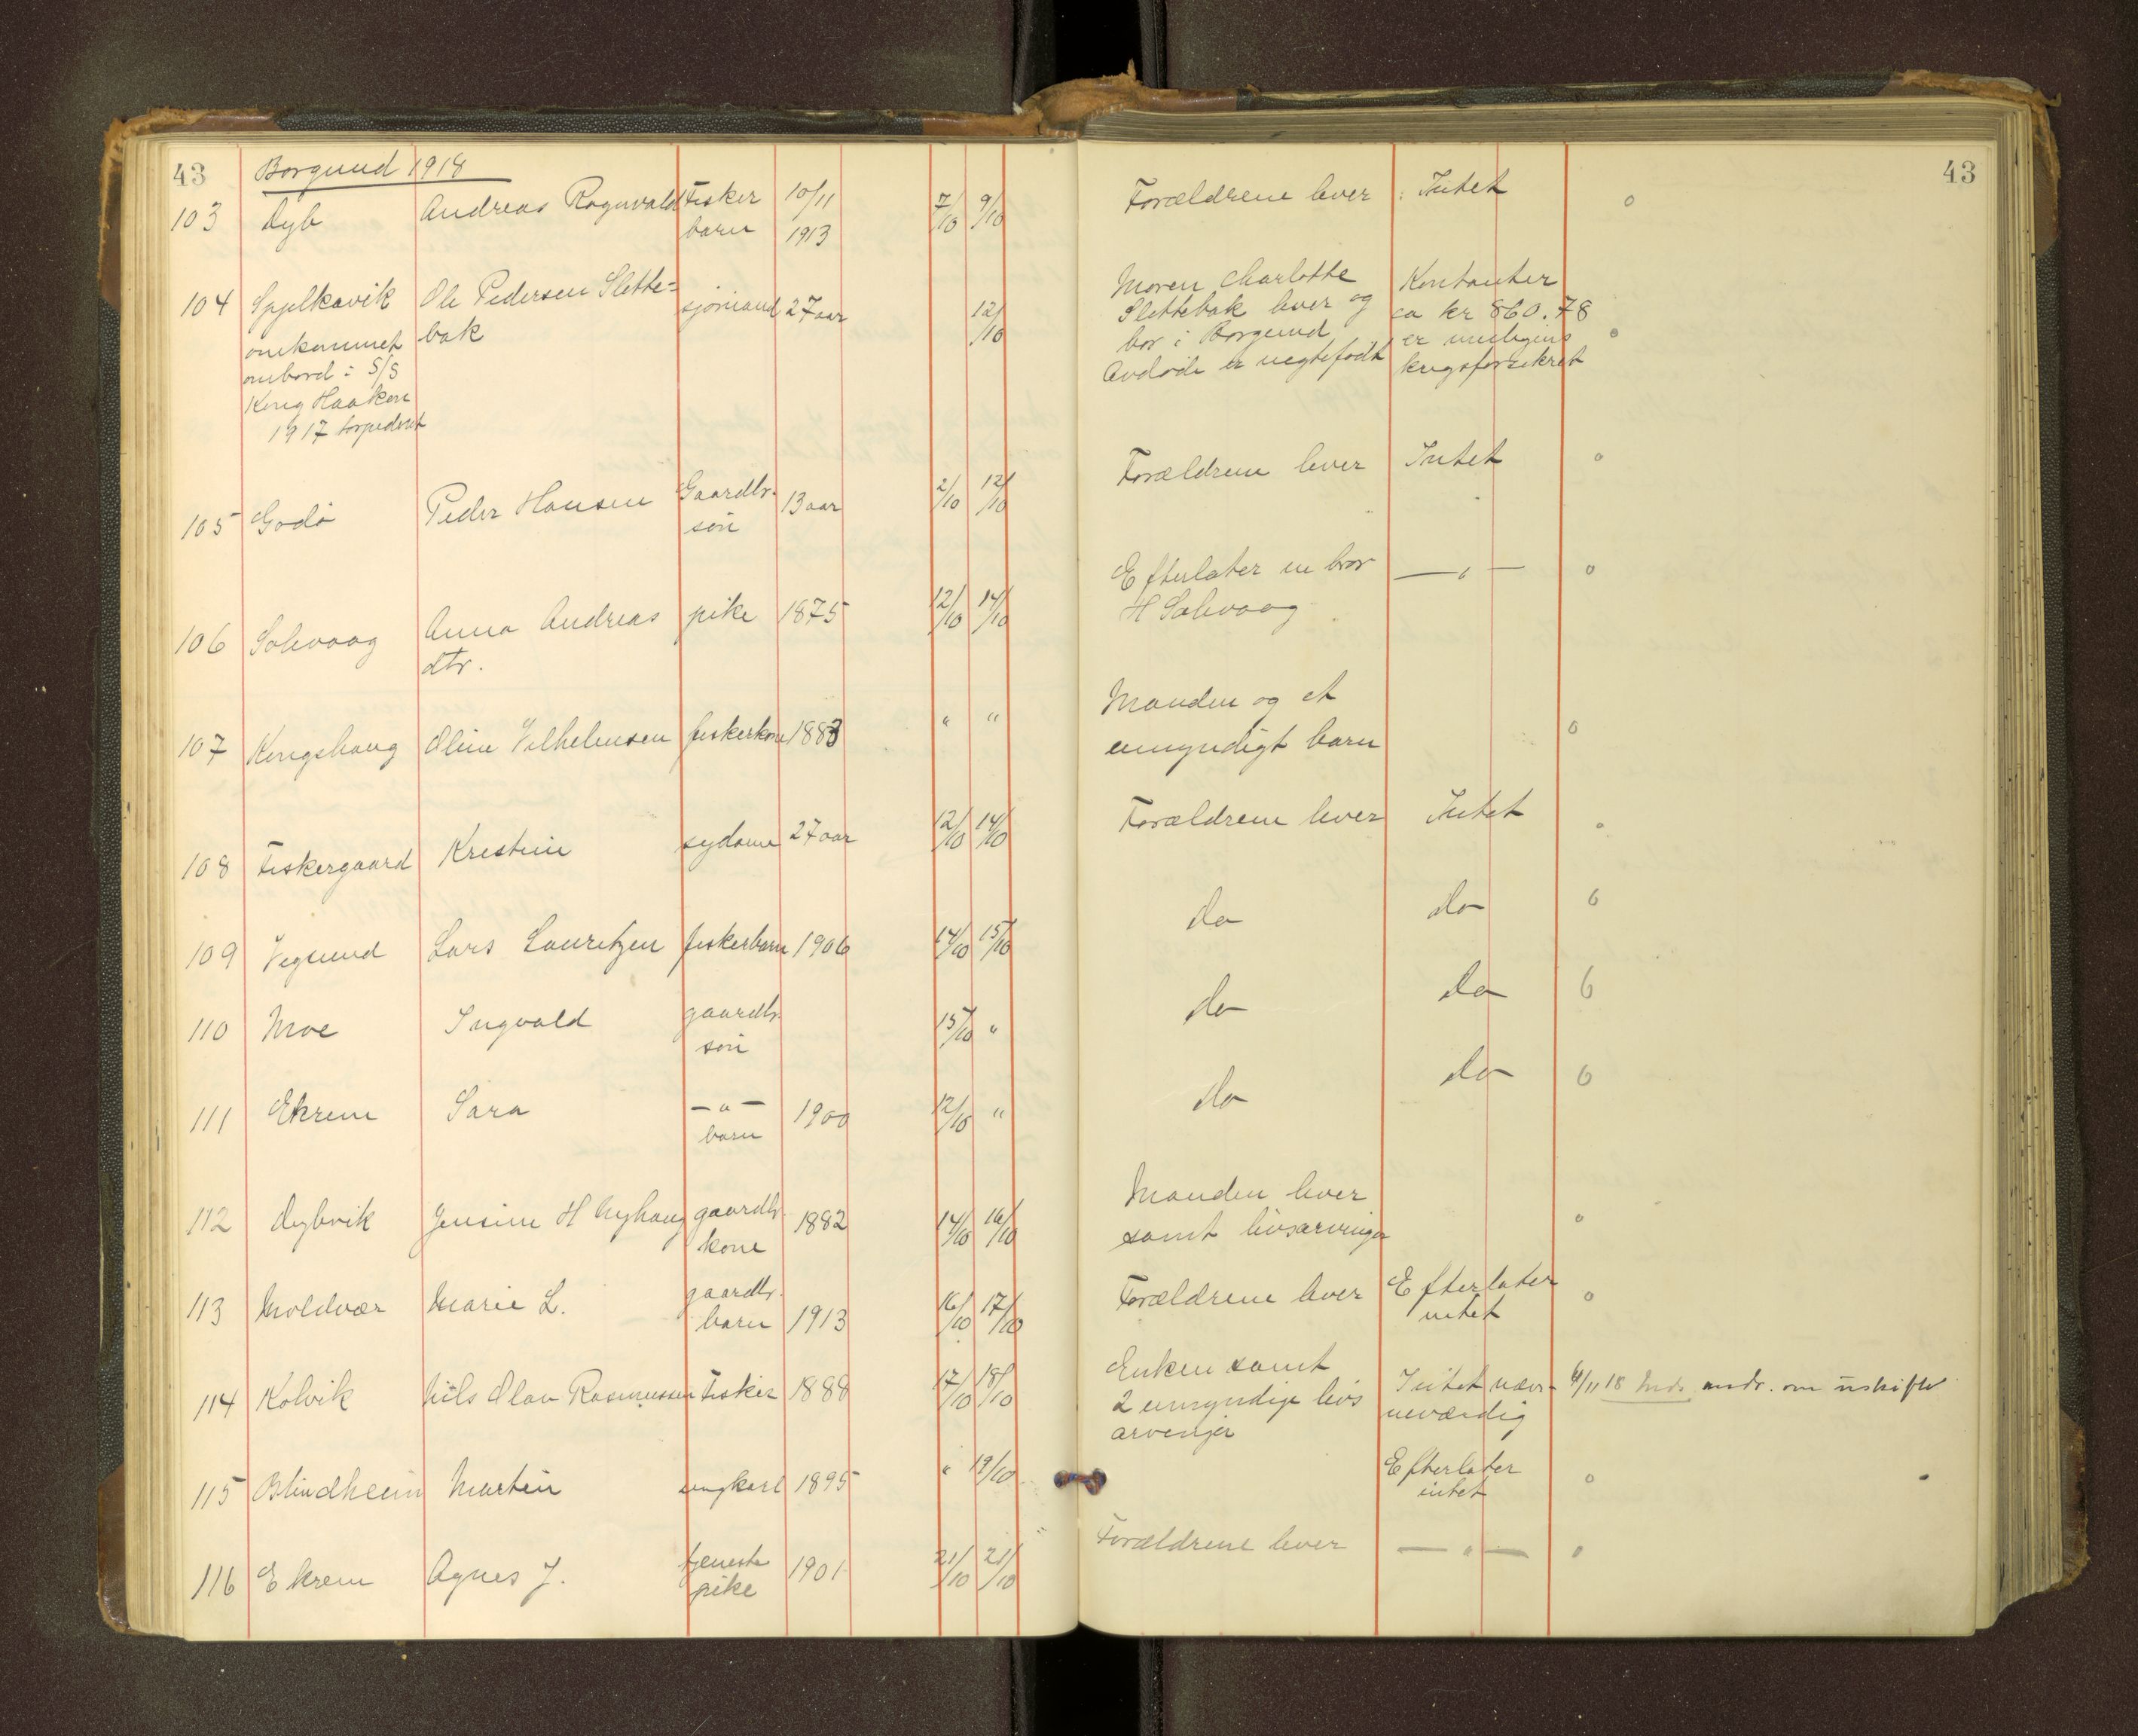 43
Borgund 1918
43
103 Dyb Andreas Ragnvald Fisker 10/11 7/10 9/10 Forældrene lever Intet o
barn 1913
104 Spjelkavik Ole Pedersen Slette= sjømand 27 aar 12/10 Moren Charlotte Kontanter
omkommet bak Slettebak lever og ca kr 860.78
ombord i S/S bor i Borgund er muligens o
Kong Haakon Avdøde er uegtefødt krigsforsikret
1917 torpedert
105 Godø Peder Hansen Gaardbr. 13 aar 2/10 12/10 Forældrene lever Intet o
søn
106 Solevaag Anna Andreas pike 1875 12/10 14/10 Efterlater en bror — " — o
dtr. H Solevaag
107 Kongshaug Oline Vilhelmsen fiskerkone 1883 " " Manden og et o
umyndigt barn
108 Fiskergaard Kristine sydame 27 aar 12/10 14/10 Forældrene lever Intet o
109 Vegsund Lars Lauritzen fiskerbarn 1906 14/10 15/10 do do o
110 Moe Ingvald gaardbr. 15/10 " do do o
søn
111 Ekrem Sara — " — 1900 12/10 " do do o
barn
112 Dybvik Jensine H Nyhaug gaardbr. 1882 14/10 16/10 Manden lever o
kone samt livsarvinger
113 Moldvær Marie L. gaardbr. 1913 16/10 17/10 Forældrene lever Efterlater o
barn intet
114 Kolvik Nils Olav Rasmussen Fisker 1888 17/10 18/10 Enken samt Intet næv- 4/11 18 andr. om uskifte
2 umyndige livs neværdig
arvinger
115 Blindheim Martin ungkarl 1895 " 19/10 Efterlater o
intet
116 Ekrem Agnes J. tjeneste 1901 21/10 21/10 Forældrene lever — " — o
pike